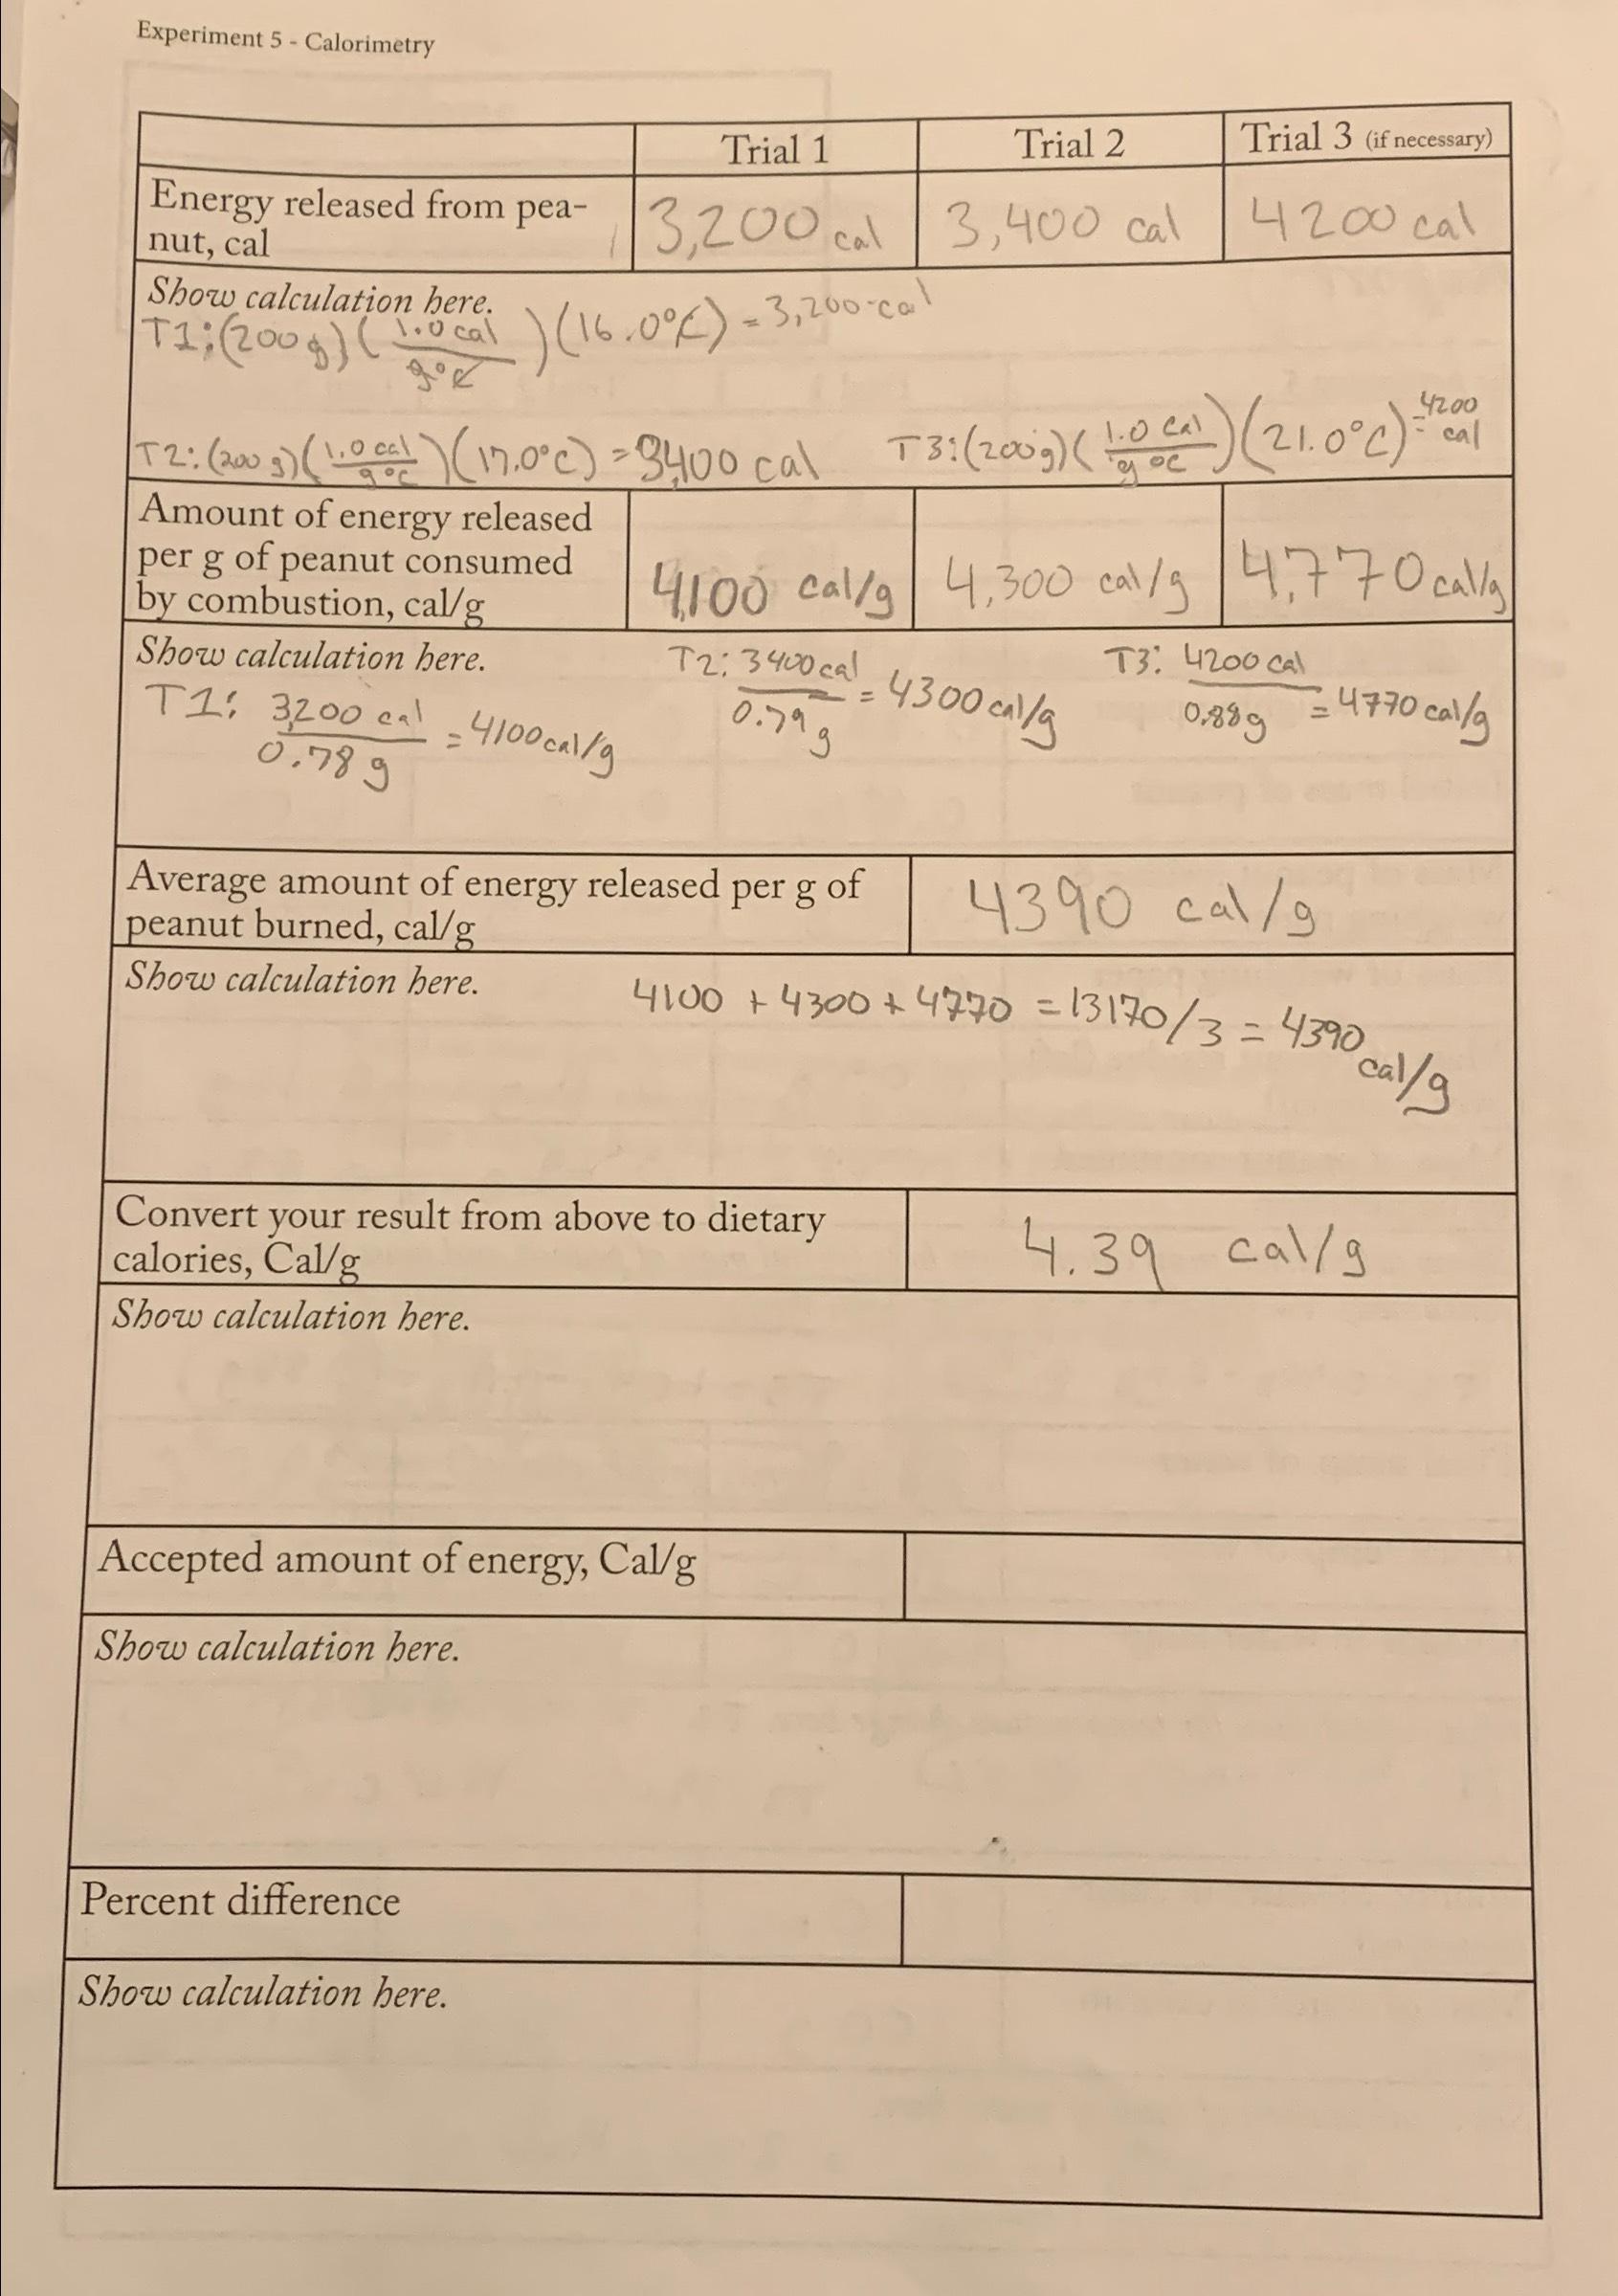 Experiment 5 - Calorimetry
Trial 1 Trial 2 Trial 3 (if necessary)
Energy released from pea-
nut, cal
3,200 cal 3,400 cal 4200 cal
Show calculation here.
T1: (200 g) (1.0 cal / g°C) (16.0°C) = 3,200 cal
T2: (200 g) (1.0 cal / g°C) (17.0°C) = 3,400 cal T3: (200g) (1.0 cal / g °C) (21.0°C) = 4200 cal
Amount of energy released
per g of peanut consumed
by combustion, cal/g
4,100 cal/g 4,300 cal/g 4,770 cal/g
Show calculation here.
T1: 3,200 cal / 0.78 g = 4100 cal/g
T2: 3400 cal / 0.79 g = 4300 cal/g
T3: 4200 cal / 0.88g = 4770 cal/g
Average amount of energy released per g of
peanut burned, cal/g
4390 cal/g
Show calculation here.
4100 + 4300 + 4770 = 13170/3 = 4390
cal/g
Convert your result from above to dietary
calories, Cal/g
4.39 cal/g
Show calculation here.
Accepted amount of energy, Cal/g
Show calculation here.
Percent difference
Show calculation here.